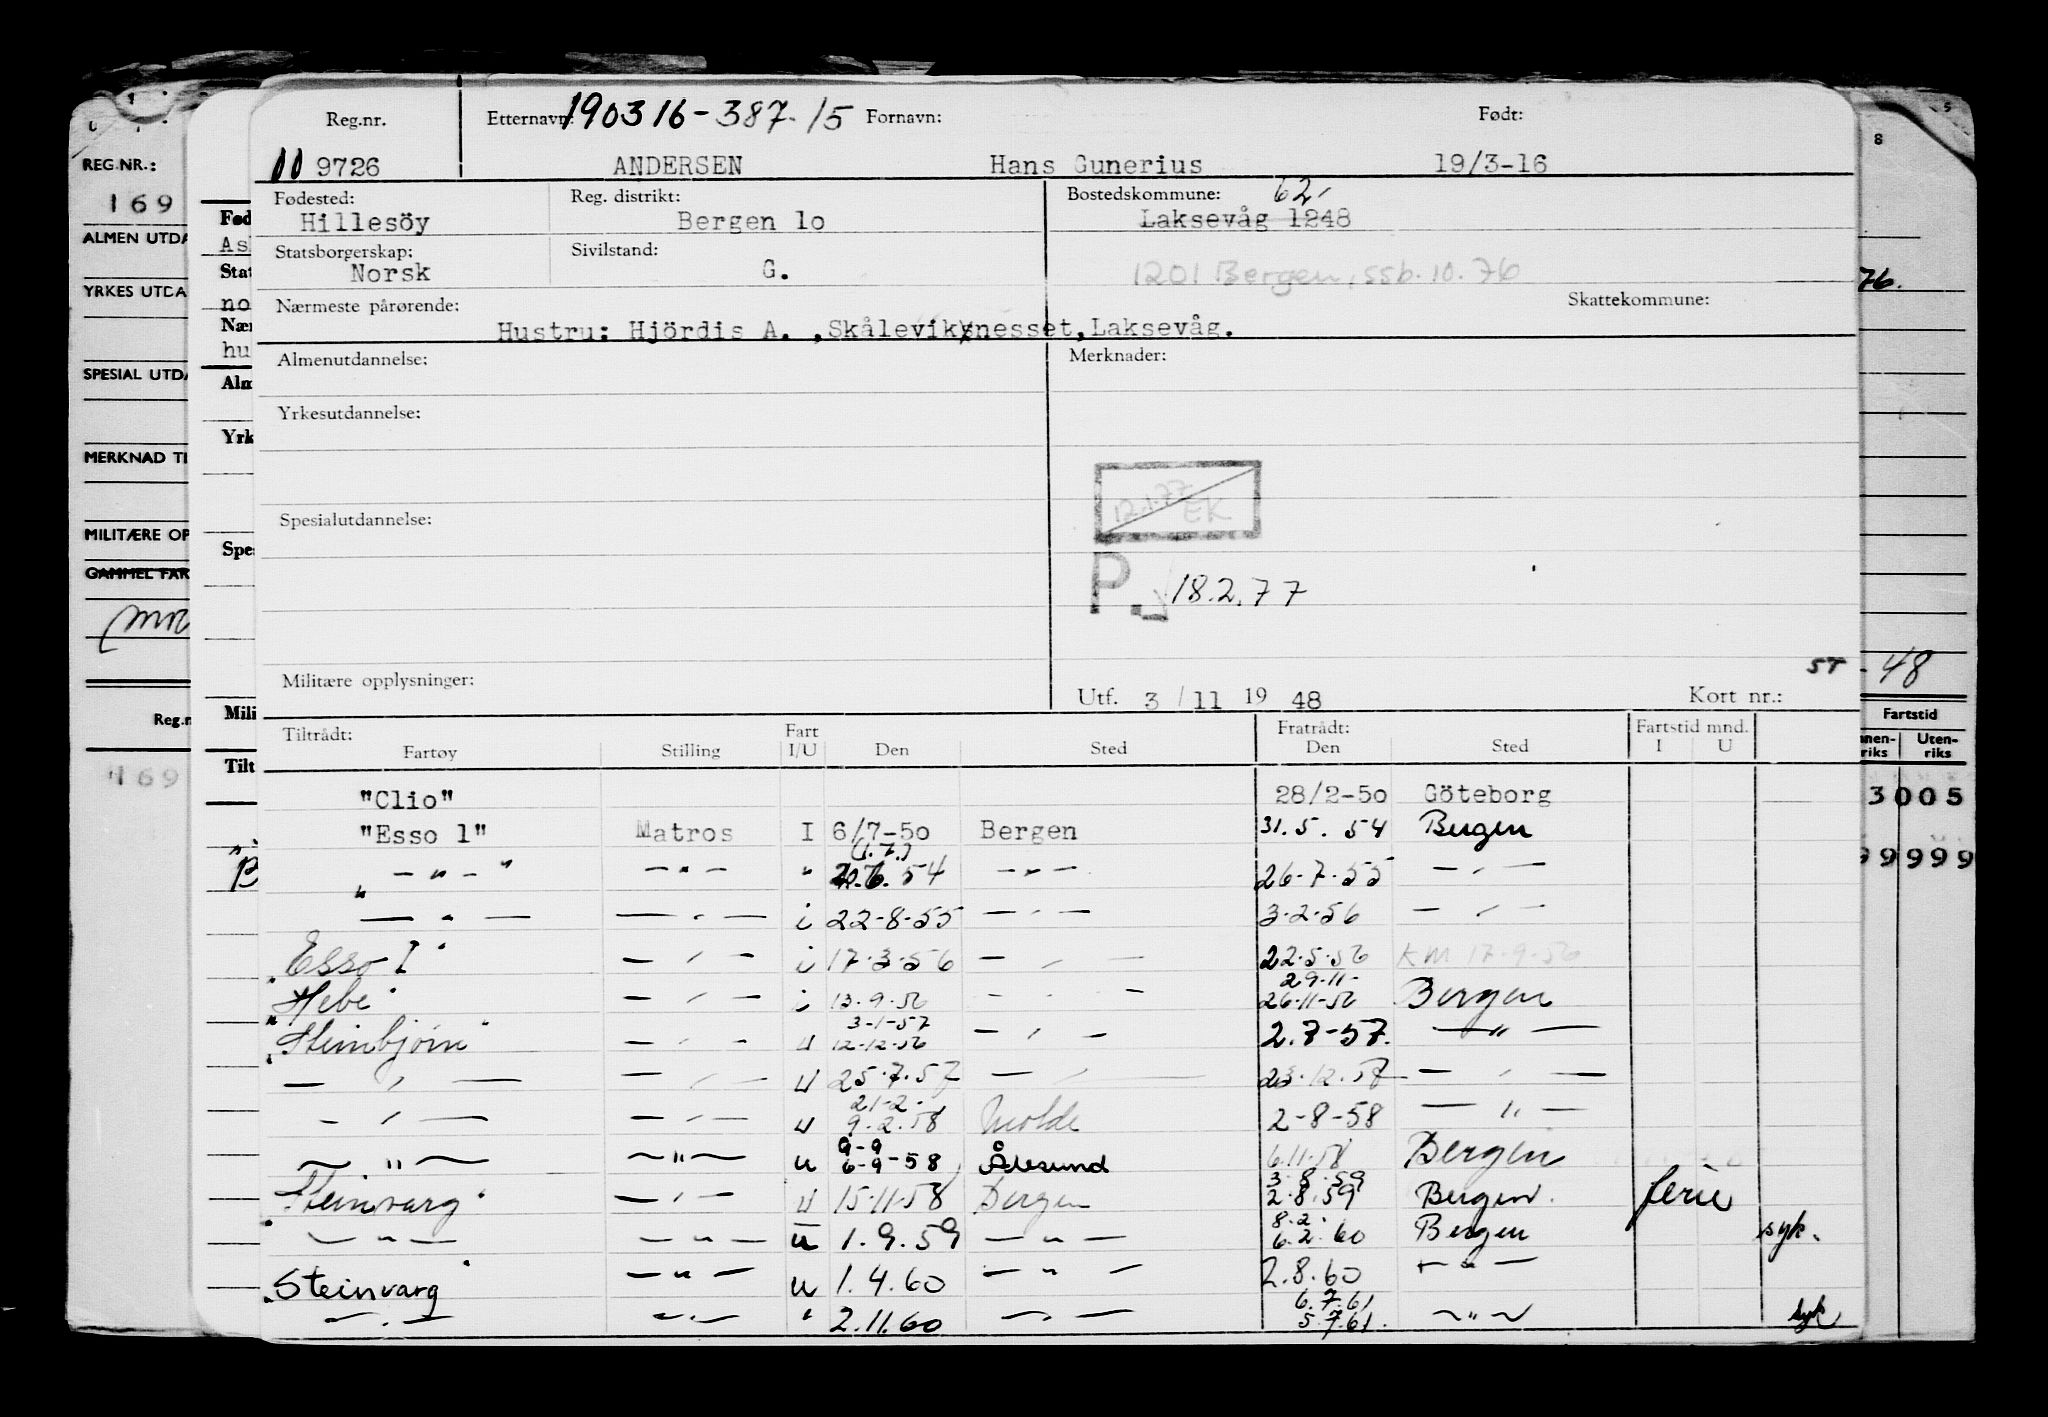 Reg.nr. Etternavn: 190316-387-15 Fornavn: Født:
9726 ANDERSEN Hans Gunerius 19/3-16
Fødested: Reg. distrikt: Bostedskommune: 62,
Hillesöy Bergen 10 Laksevåg 1248
Statsborgerskap: Sivilstand:
Norsk G. 1201 Bergen, ssb. 10. 76
Nærmeste pårørende: Skattekommune:
Hustru: Hjördis A. ,Skåleviknesset, Laksevåg.
Almenutdannelse: Merknader:
Yrkesutdannelse:
12.1.77 EK
Spesialutdannelse:
P. 18.2.77
Militære opplysninger: Utf. 3/11 19 48 Kort nr.:
Tiltrådt: Fart Fratrådt: Fartstid mnd.
Fartøy Stilling I/U Den Sted Den Sted I U
"Clio" 28/2-50 Göteborg
"Esso 1" Matros I 6/7-50 Bergen 31.5.54 Bergen
(1.7.)
" — " — " — " — " 54 — " — 26-7-55 — " —
— " — — " — i 22-8-55 — " — 3-2-56 — " —
"Esso I" — " — i 17-3-56 — " — 22-5-56 KM 17-9-56
29-11-
"Hebe" — " — i 13-9-56 — " — 26-11-56 Bergen
3-1-57
"Steinbjørn" — " — u 12-12-56 — " — 2.7-57. — " —
— " — — " — u 25-7-57 — " — 23-12-57 — " —
21-2-
— " — — " — u 9-2-58 Molde 2-8-58 — " —
9-9
— " — — " — u 6-9-58 Ålesund 6.11.58 Bergen
3.8.59
"Steinvarg" — " — u 15-11-58 Bergen 2.8.59 Bergen. ferie
8.2.
— " — — " — u 1.9.59 — " — 6.2.60 Bergen syk.
"Steinvarg" — " — u 1.4.60 — " — 2.8.60 — " —
6.7.61
— " — — " — " 2.11.60 — " — 5.7.61. — " — syk
REG.NR.:
169
ALMEN UTDA
YRKES UTDA
SPESIAL UTDA
MERKNAD TI
MILITÆRE OP
GAMMEL FAR
Reg.n
169
Fød
As
Stat
no
Nær
hu
Alm
Yrk
Spe
Mili
Tilt
"B
5
8
76.
ST - 48
Fartstid
nnen-riks Uten-riks
3005
99999